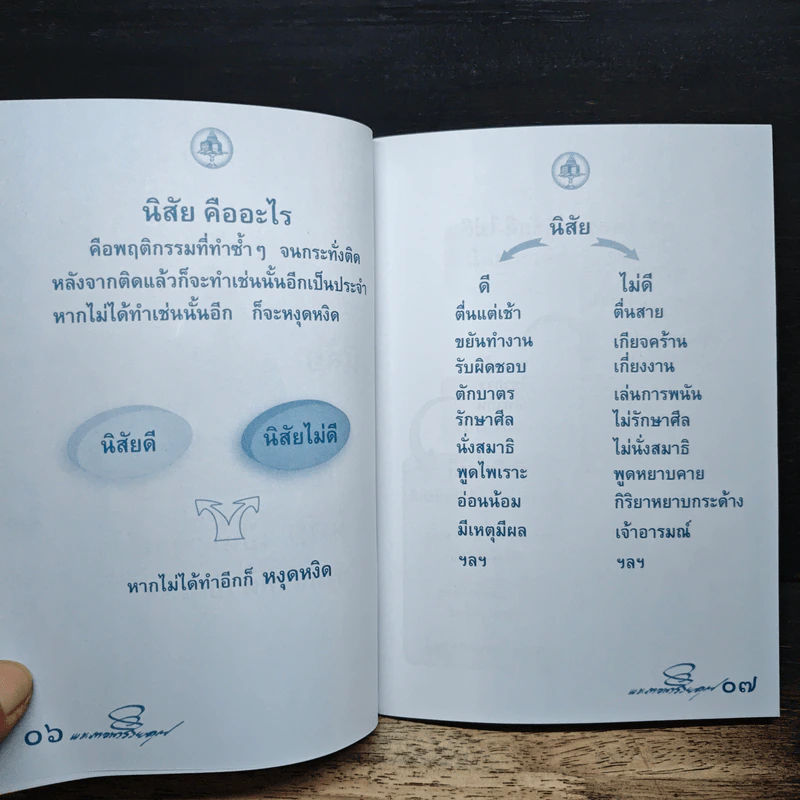 นิสัย คืออะไร
คือพฤติกรรมที่ทำซ้ำๆ จนกระทั่งติด
หลังจากติดแล้วก็จะทำเช่นนั้นอีกเป็นประจำ
หากไม่ได้ทำเช่นนั้นอีก ก็จะหงุดหงิด
นิสัยดี นิสัยไม่ดี
หากไม่ได้ทำอีกก็ หงุดหงิด
๐๖
นิสัย
ดี ไม่ดี
ตื่นแต่เช้า ตื่นสาย
ขยันทำงาน เกียจคร้าน
รับผิดชอบ เกี่ยงงาน
ตักบาตร เล่นการพนัน
รักษาศีล ไม่รักษาศีล
นั่งสมาธิ ไม่นั่งสมาธิ
พูดไพเราะ พูดหยาบคาย
อ่อนน้อม กิริยาหยาบกระด้าง
มีเหตุมีผล เจ้าอารมณ์
ฯลฯ ฯลฯ
๐๗